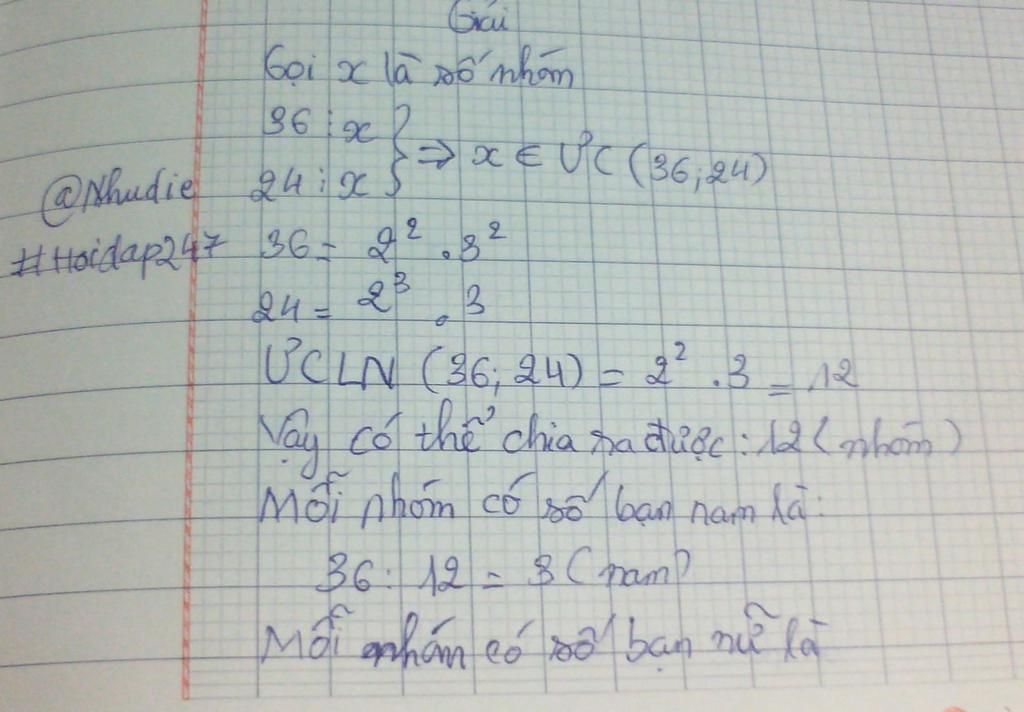 Giải
Gọi x là số nhóm
36 ⋮ x
24 ⋮ x } ⇒ x ∈ ƯC (36; 24)
@Nhudie
#Hoidap247
36 = 2² . 3²
24 = 2³ . 3
ƯCLN (36; 24) = 2² . 3 = 12
Vậy có thể chia ra được: 12 (nhóm)
Mỗi nhóm có số bạn nam là:
36 : 12 = 3 (nam)
Mỗi nhóm có số bạn nữ là